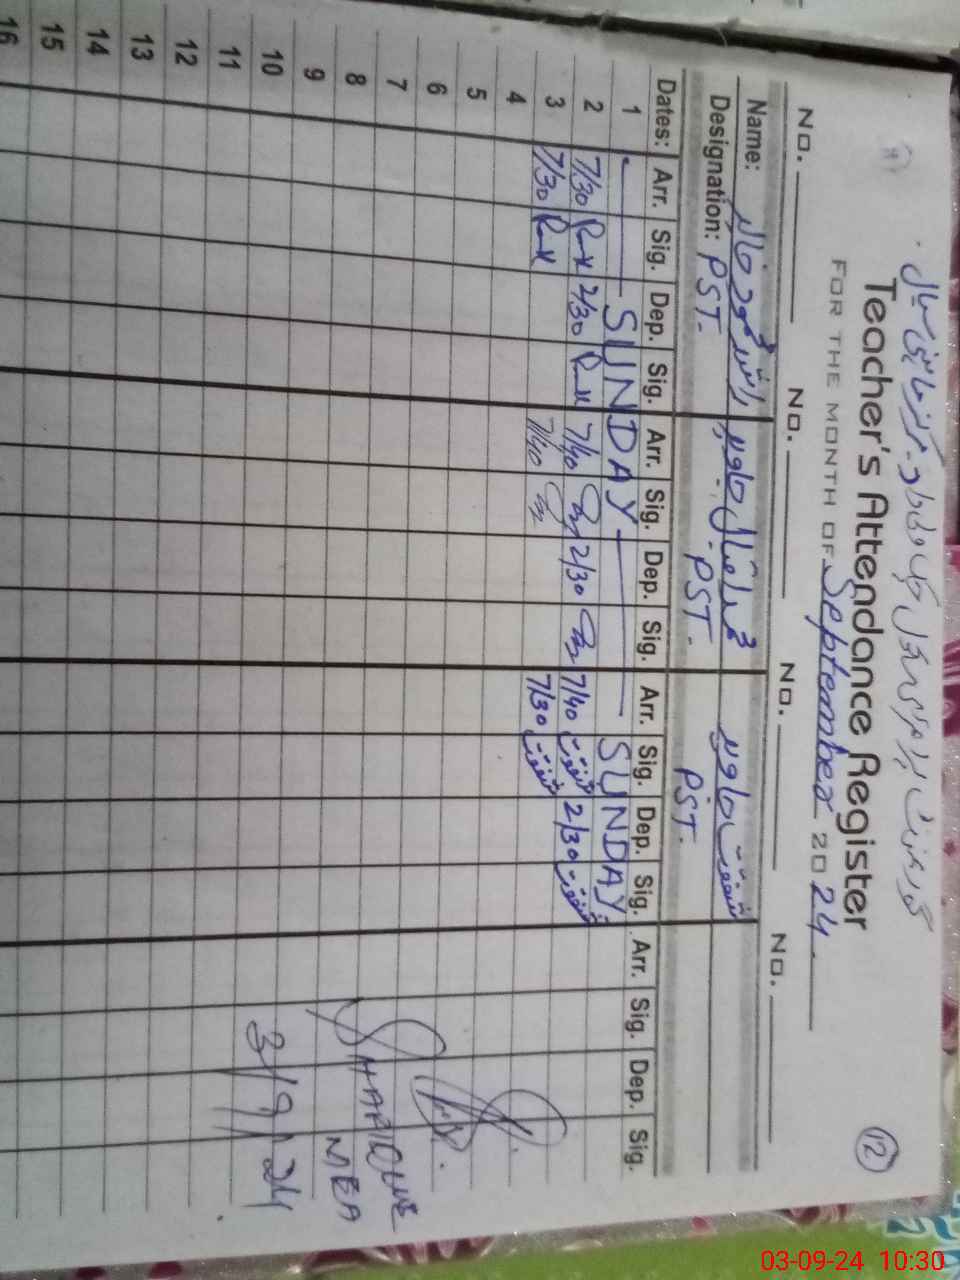 Teacher's Attendance Register
FOR THE MONTH OF September 2024
12
No. No. No. No.
Name: محمد اقبال جاوید شفقت جاوید
Designation: PST- PST- PST-
Dates: Arr. Sig. Dep. Sig. Arr. Sig. Dep. Sig. Arr. Sig. Dep. Sig. Arr. Sig. Dep. Sig.
1 SUNDAY SUNDAY
2 7/30 2/30 7/40 2/30 7/40 شفقت 2/30 شفقت
3 7/30 7/40 7/30 شفقت
4
5
6
7
8
9
10
11
12
13
14
15
16
SHARIQUE
MEA
3/9/24
03-09-24 10:30